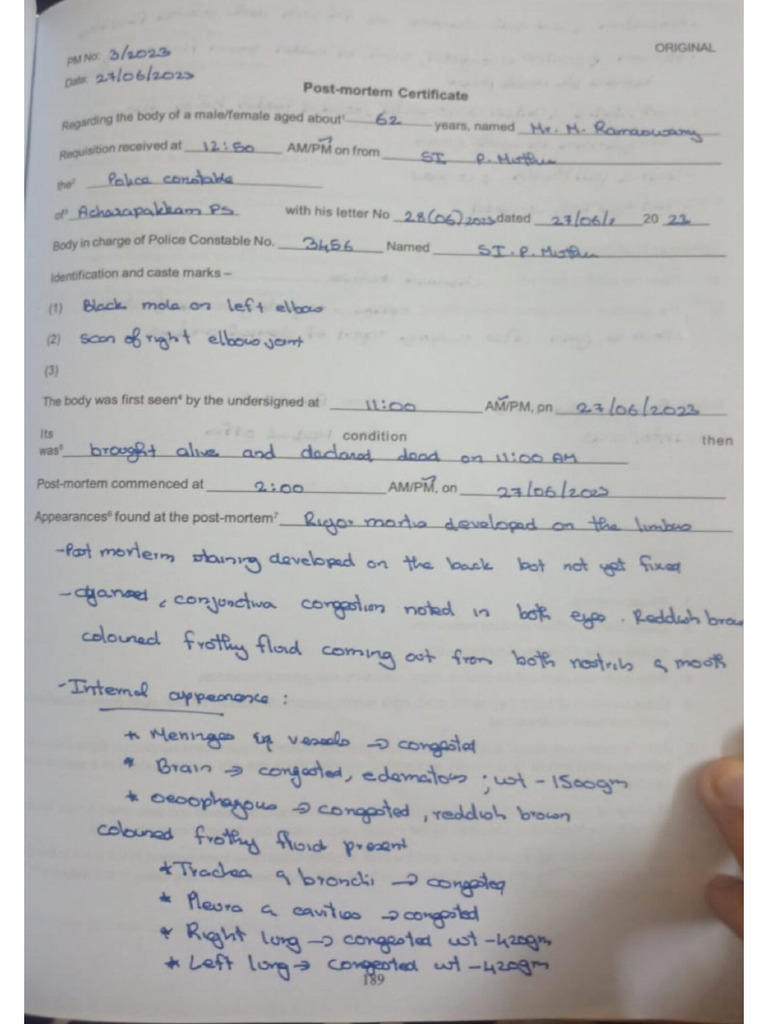 ORIGINAL
PM No: 3/2023
Date: 27/06/2023
Post-mortem Certificate
Regarding the body of a male/female aged about¹ 62 years, named Mr. M. Ramaswamy
Requisition received at 12:50 AM/PM on from SI P. Muthu
the² Police constable
of³ Acharapakkam PS with his letter No 28(06)2023 dated 27/06/ 20 23
Body in charge of Police Constable No. 3456 Named SI. P. Muthu
Identification and caste marks –
(1) Black mole on left elbow
(2) scar of right elbow joint
(3)
The body was first seen⁴ by the undersigned at 11:00 AM/PM, on 27/06/2023
Its condition then
was⁵ brought alive and declared dead on 11:00 AM
Post-mortem commenced at 2:00 AM/PM, on 27/06/2023
Appearances⁶ found at the post-mortem⁷ Rigor mortis developed on the limbs
- Post morterm staining developed on the back but not yet fixed
- cyanosed, conjunctiva congestion noted in both eyes. Reddish brow
coloured frothy fluid coming out from both nostrils & mouth
- Internal appearance :
* Meninges & vessels → congested
* Brain → congested, edematous ; wt - 1500gm
* oesophagous → congested, reddish brown
coloured frothy fluid present
* Trachea & bronchi → congested
* Pleura & cavities → congested
* Right lung → congested wt - 420gm
* Left lung → congested wt - 420gm
189